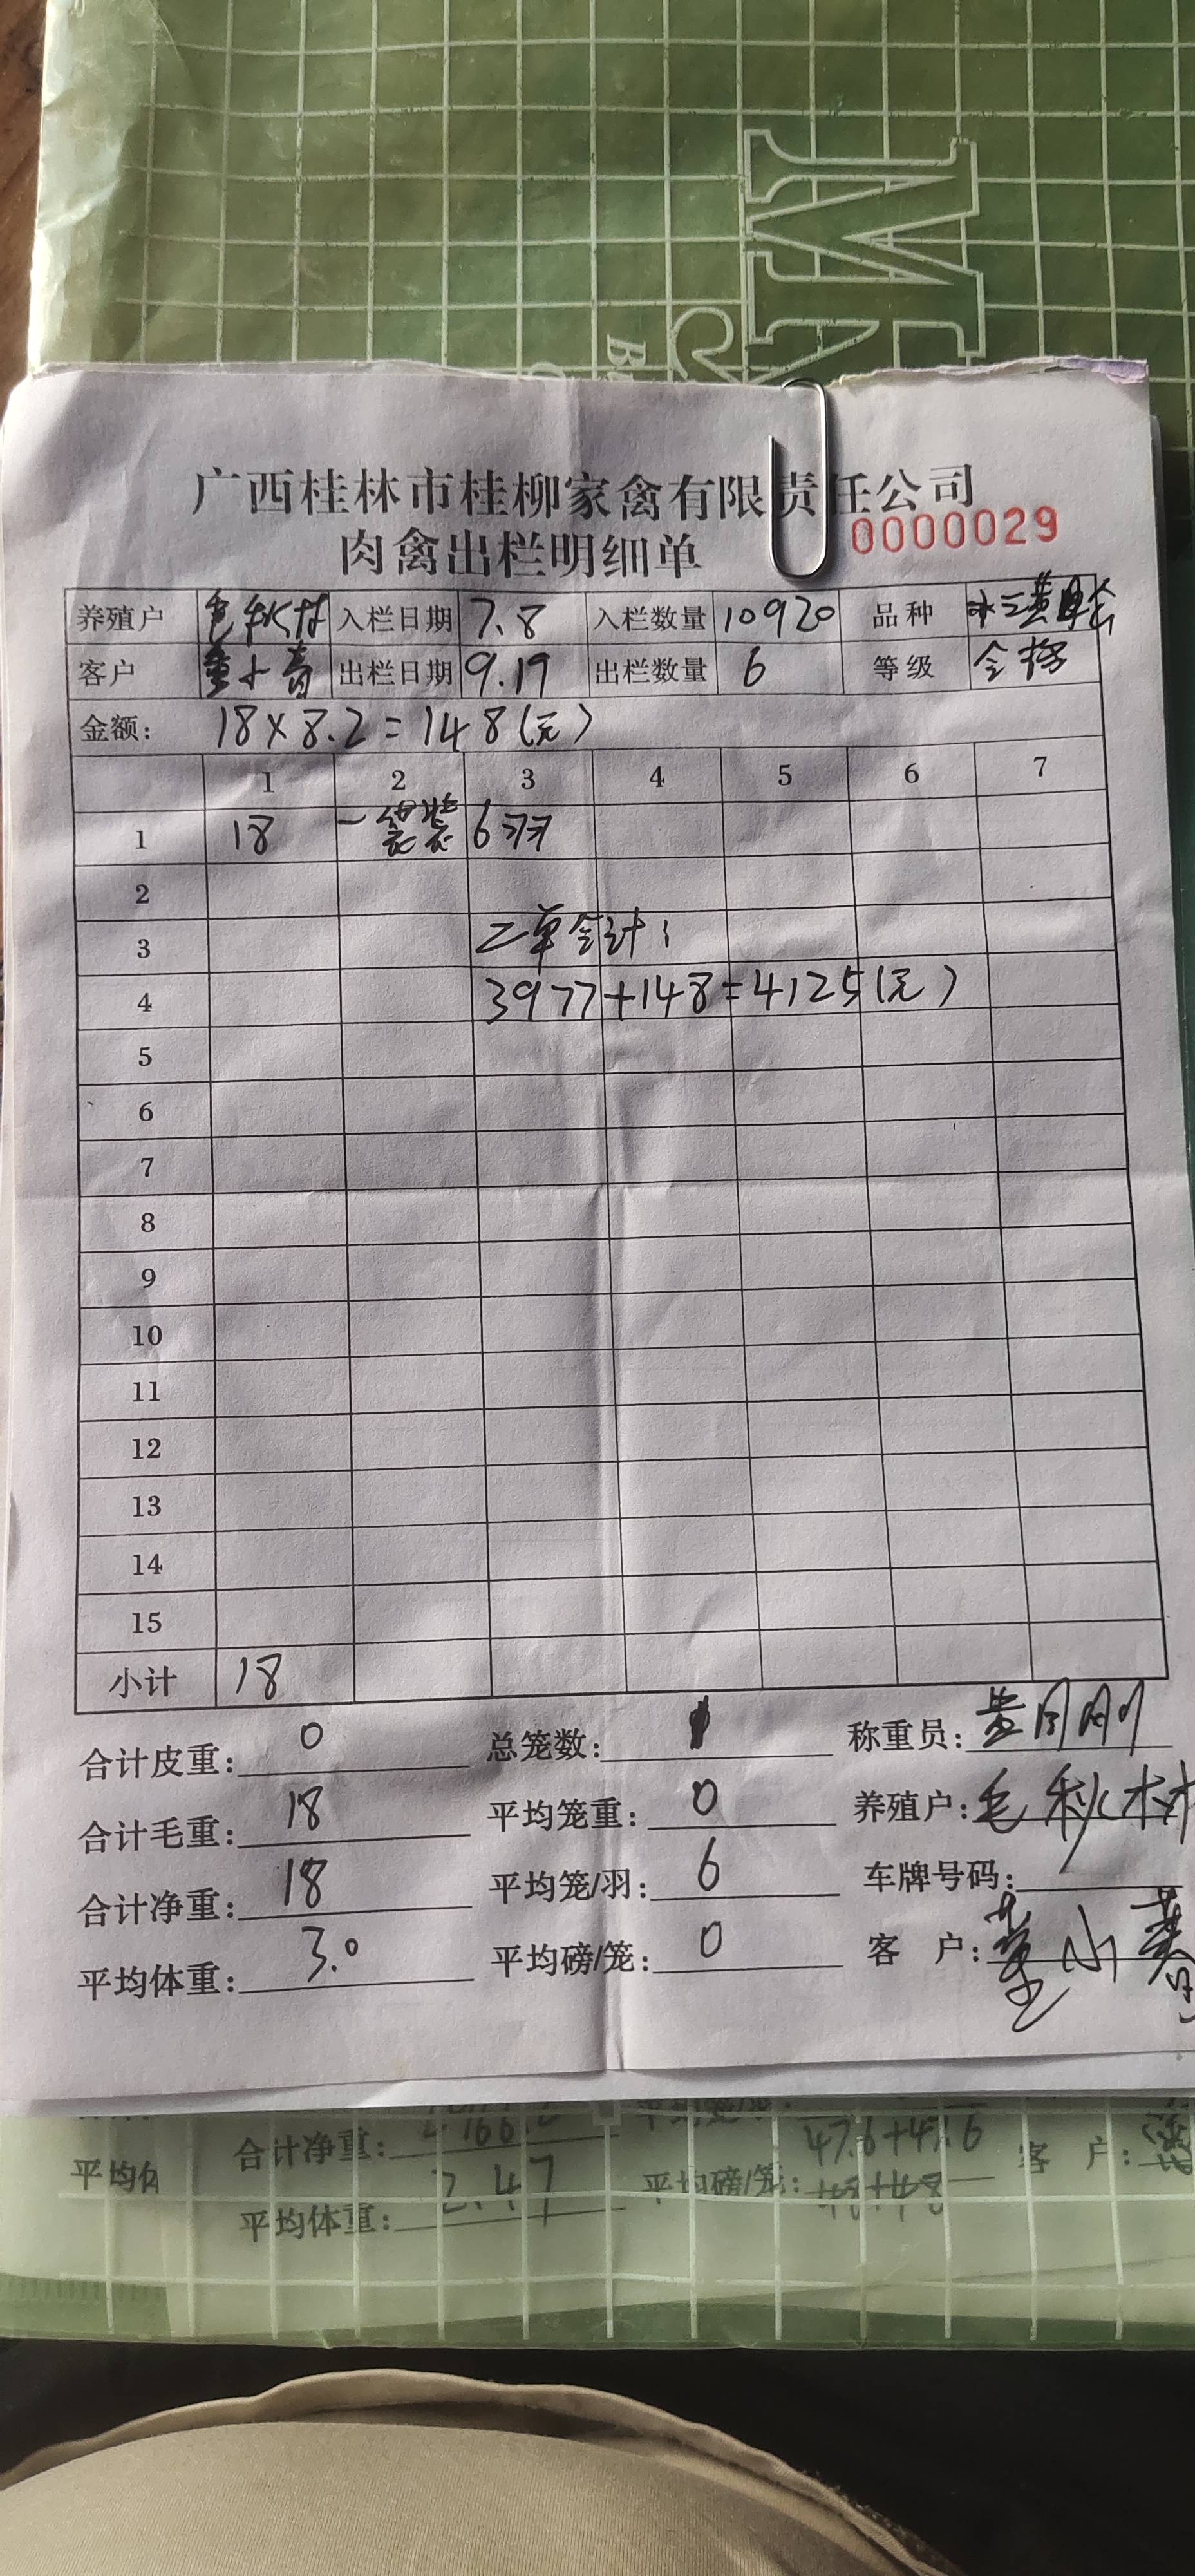 广西桂林市桂柳家禽有限责任公司
肉禽出栏明细单 0000029
养殖户 毛秋林 入栏日期 7.8 入栏数量 10920 品种
客户 董小青 出栏日期 9.19 出栏数量 6 等级 合格
金额: 18×8.2=148(元)
1 2 3 4 5 6 7
1 18 一袋装 6羽
2
3 二单合计:
4 3977+148=4125(元)
5
6
7
8
9
10
11
12
13
14
15
小计 18
合计皮重: 0 总笼数: 称重员:
合计毛重: 18 平均笼重: 0 养殖户: 毛秋林
合计净重: 18 平均笼/羽: 6 车牌号码: /
平均体重: 3.0 平均磅/笼: 0 客 户: 董小青
合计净重:
平均体重: 2.47 平均磅/笼: 47.6+47.6 客 户:
48+48